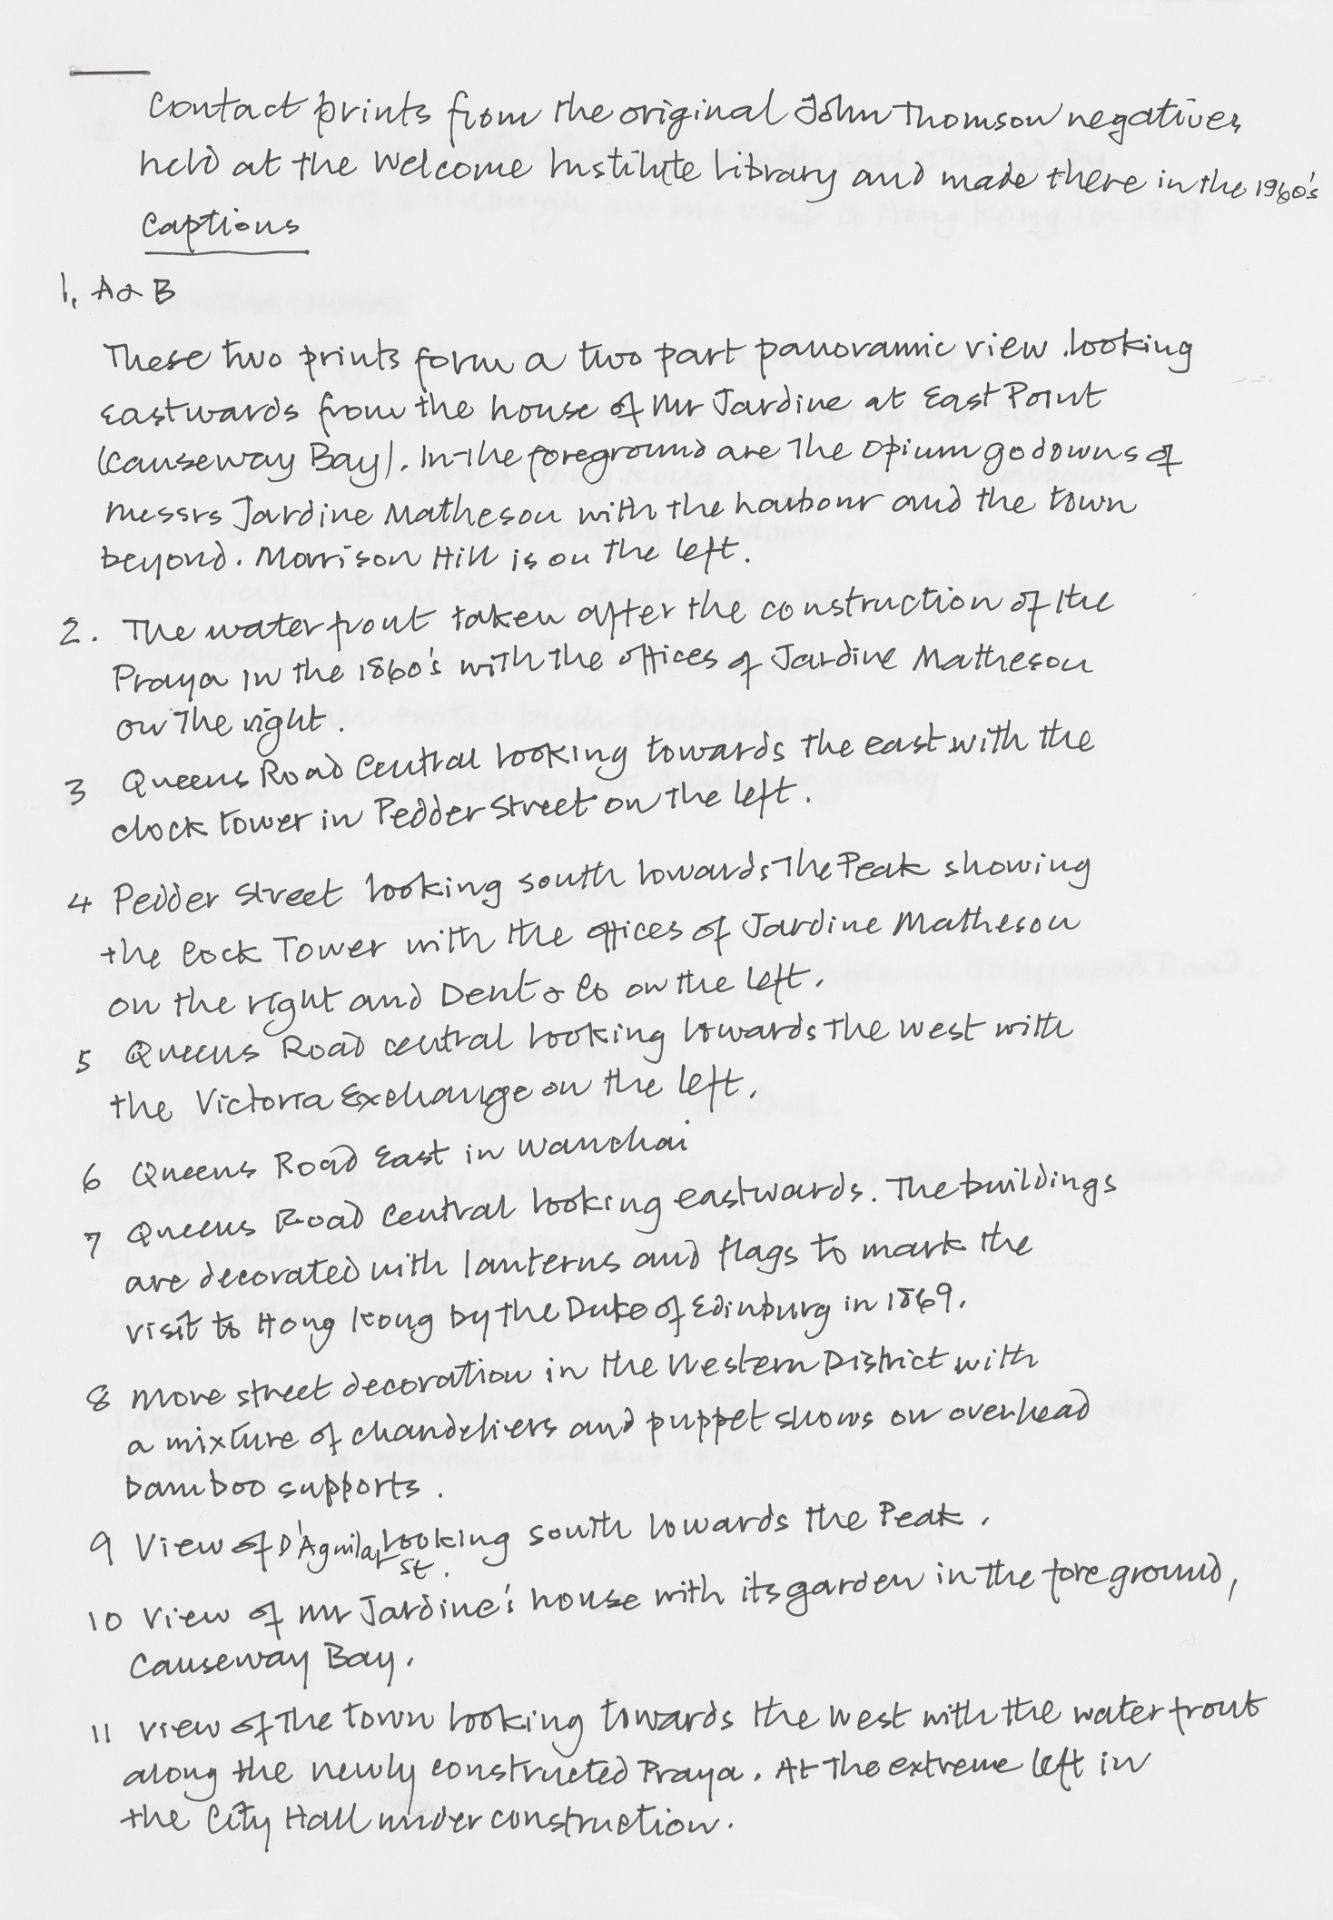 Contact prints from the original John Thomson negatives
held at the Welcome Institute Library and made there in the 1960's
Captions
1, A & B
These two prints form a two part panoramic view. looking
Eastwards from the house of Mr Jardine at East Point
(Causeway Bay). In the foreground are the Opium godowns of
Messrs Jardine Matheson with the harbour and the town
beyond. Morrison Hill is on the left.
2. The waterfront taken after the construction of the
Praya in the 1860's with the offices of Jardine Matheson
on the right.
3 Queens Road Central looking towards the east with the
clock tower in Pedder Street on the left.
4 Pedder Street looking south towards the Peak showing
the Cock Tower with the offices of Jardine Matheson
on the right and Dent & Co on the left.
5 Queens Road central looking towards the west with
the Victoria Exchange on the left.
6 Queens Road East in Wanchai
7 Queens Road Central looking eastwards. The buildings
are decorated with lanterns and flags to mark the
visit to Hong Kong by the Duke of Edinburg in 1869.
8 More street decoration in the Western District with
a mixture of chandeliers and puppet shows on overhead
bamboo supports.
9 View of D'Aguilar St. looking south towards the Peak.
10 View of Mr Jardine's house with its garden in the foreground,
Causeway Bay.
11 View of the town looking towards the west with the waterfront
along the newly constructed Praya. At the extreme left in
the City Hall under construction.